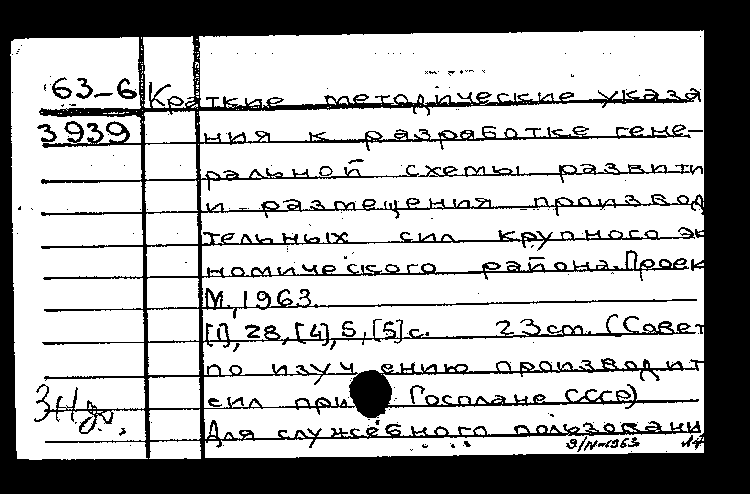 63-6 Краткие методические указа
3939 ния к разработке гене-
ральной схемы развити
и размещения производ
тельных сил крупного эк
номического района. Проек
М., 1963.
[1], 28, [4], 5, [5] с. 23 см. (Совет
по изучению производит
сил при Госплане СССР)
Для служебного пользовани
9/IV-1963